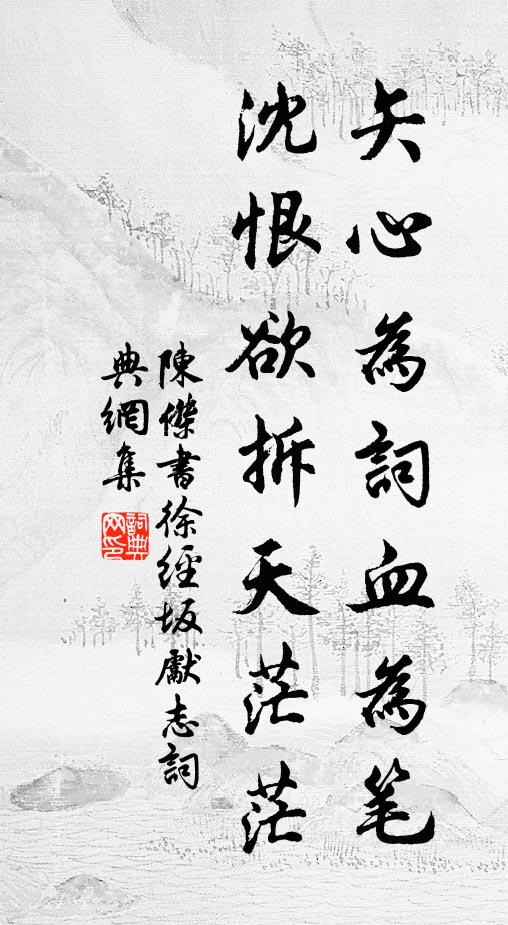 矢心為詞血為笔
沈恨欲拆天茫茫
陳傑書徐經坂獻志詞
典網集
詞典网印